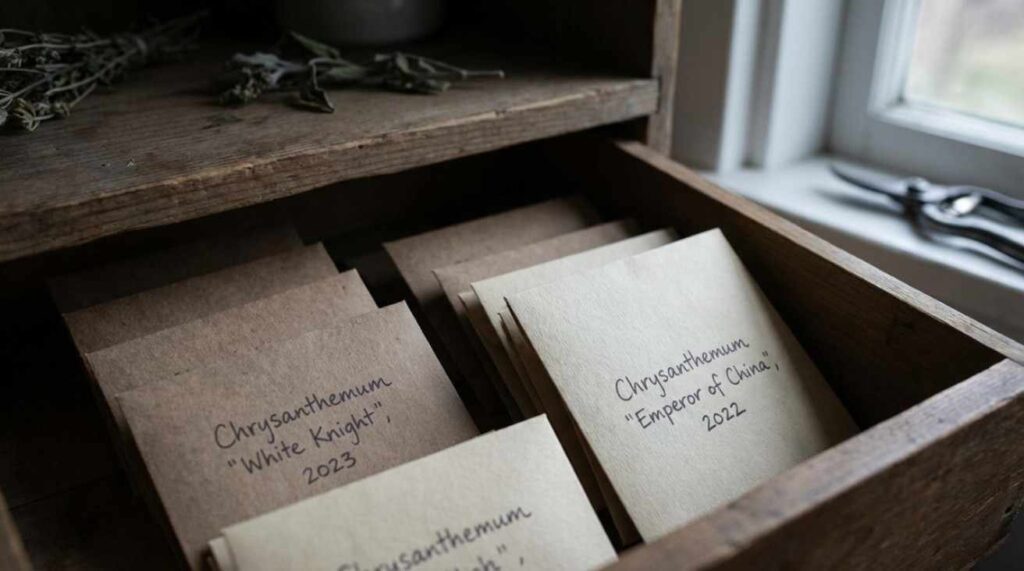 Chrysanthemum
"White Knight",
2023
Chrysanthemum
"Emperor of China",
2022
Chrysanthemum